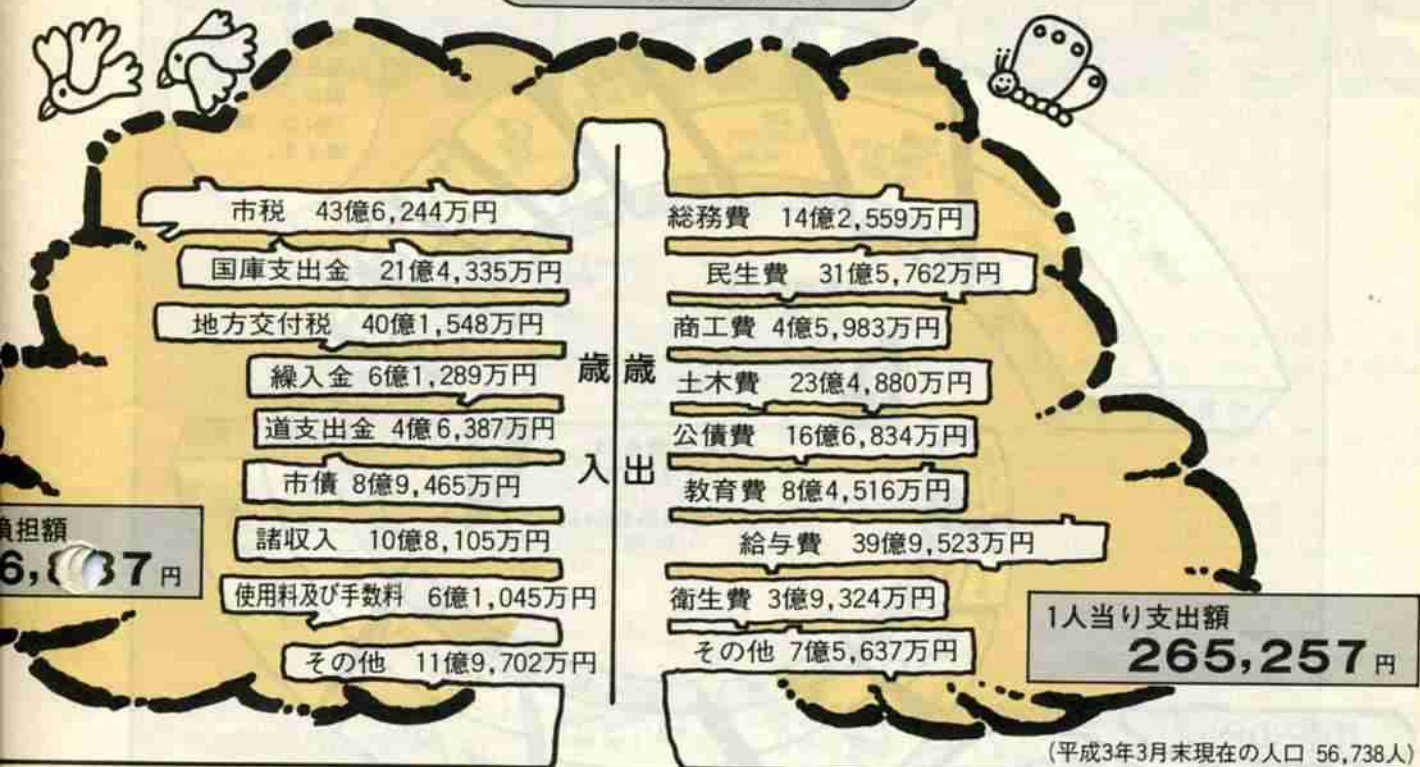 市税 43億6,244万円
国庫支出金 21億4,335万円
地方交付税 40億1,548万円
繰入金 6億1,289万円
道支出金 4億6,387万円
市債 8億9,465万円
諸収入 10億8,105万円
使用料及び手数料 6億1,045万円
その他 11億9,702万円
歳入
歳出
総務費 14億2,559万円
民生費 31億5,762万円
商工費 4億5,983万円
土木費 23億4,880万円
公債費 16億6,834万円
教育費 8億4,516万円
給与費 39億9,523万円
衛生費 3億9,324万円
その他 7億5,637万円
負担額
円
1人当り支出額
265,257円
(平成3年3月末現在の人口 56,738人)